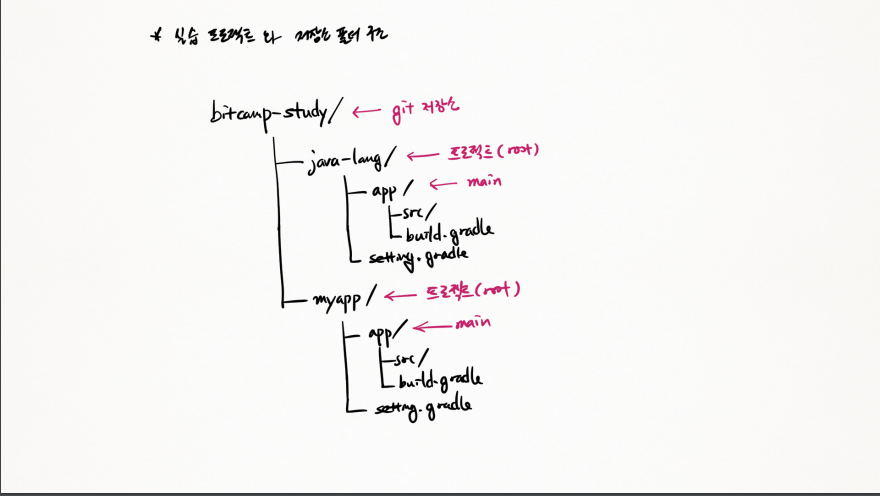 * 실습 프로젝트 와 저장소 폴더 구조
bitcamp-study/ ← git 저장소
java-lang/ ← 프로젝트(root)
app/ ← main
src/
build.gradle
setting.gradle
myapp/ ← 프로젝트(root)
app/ ← main
src/
build.gradle
setting.gradle